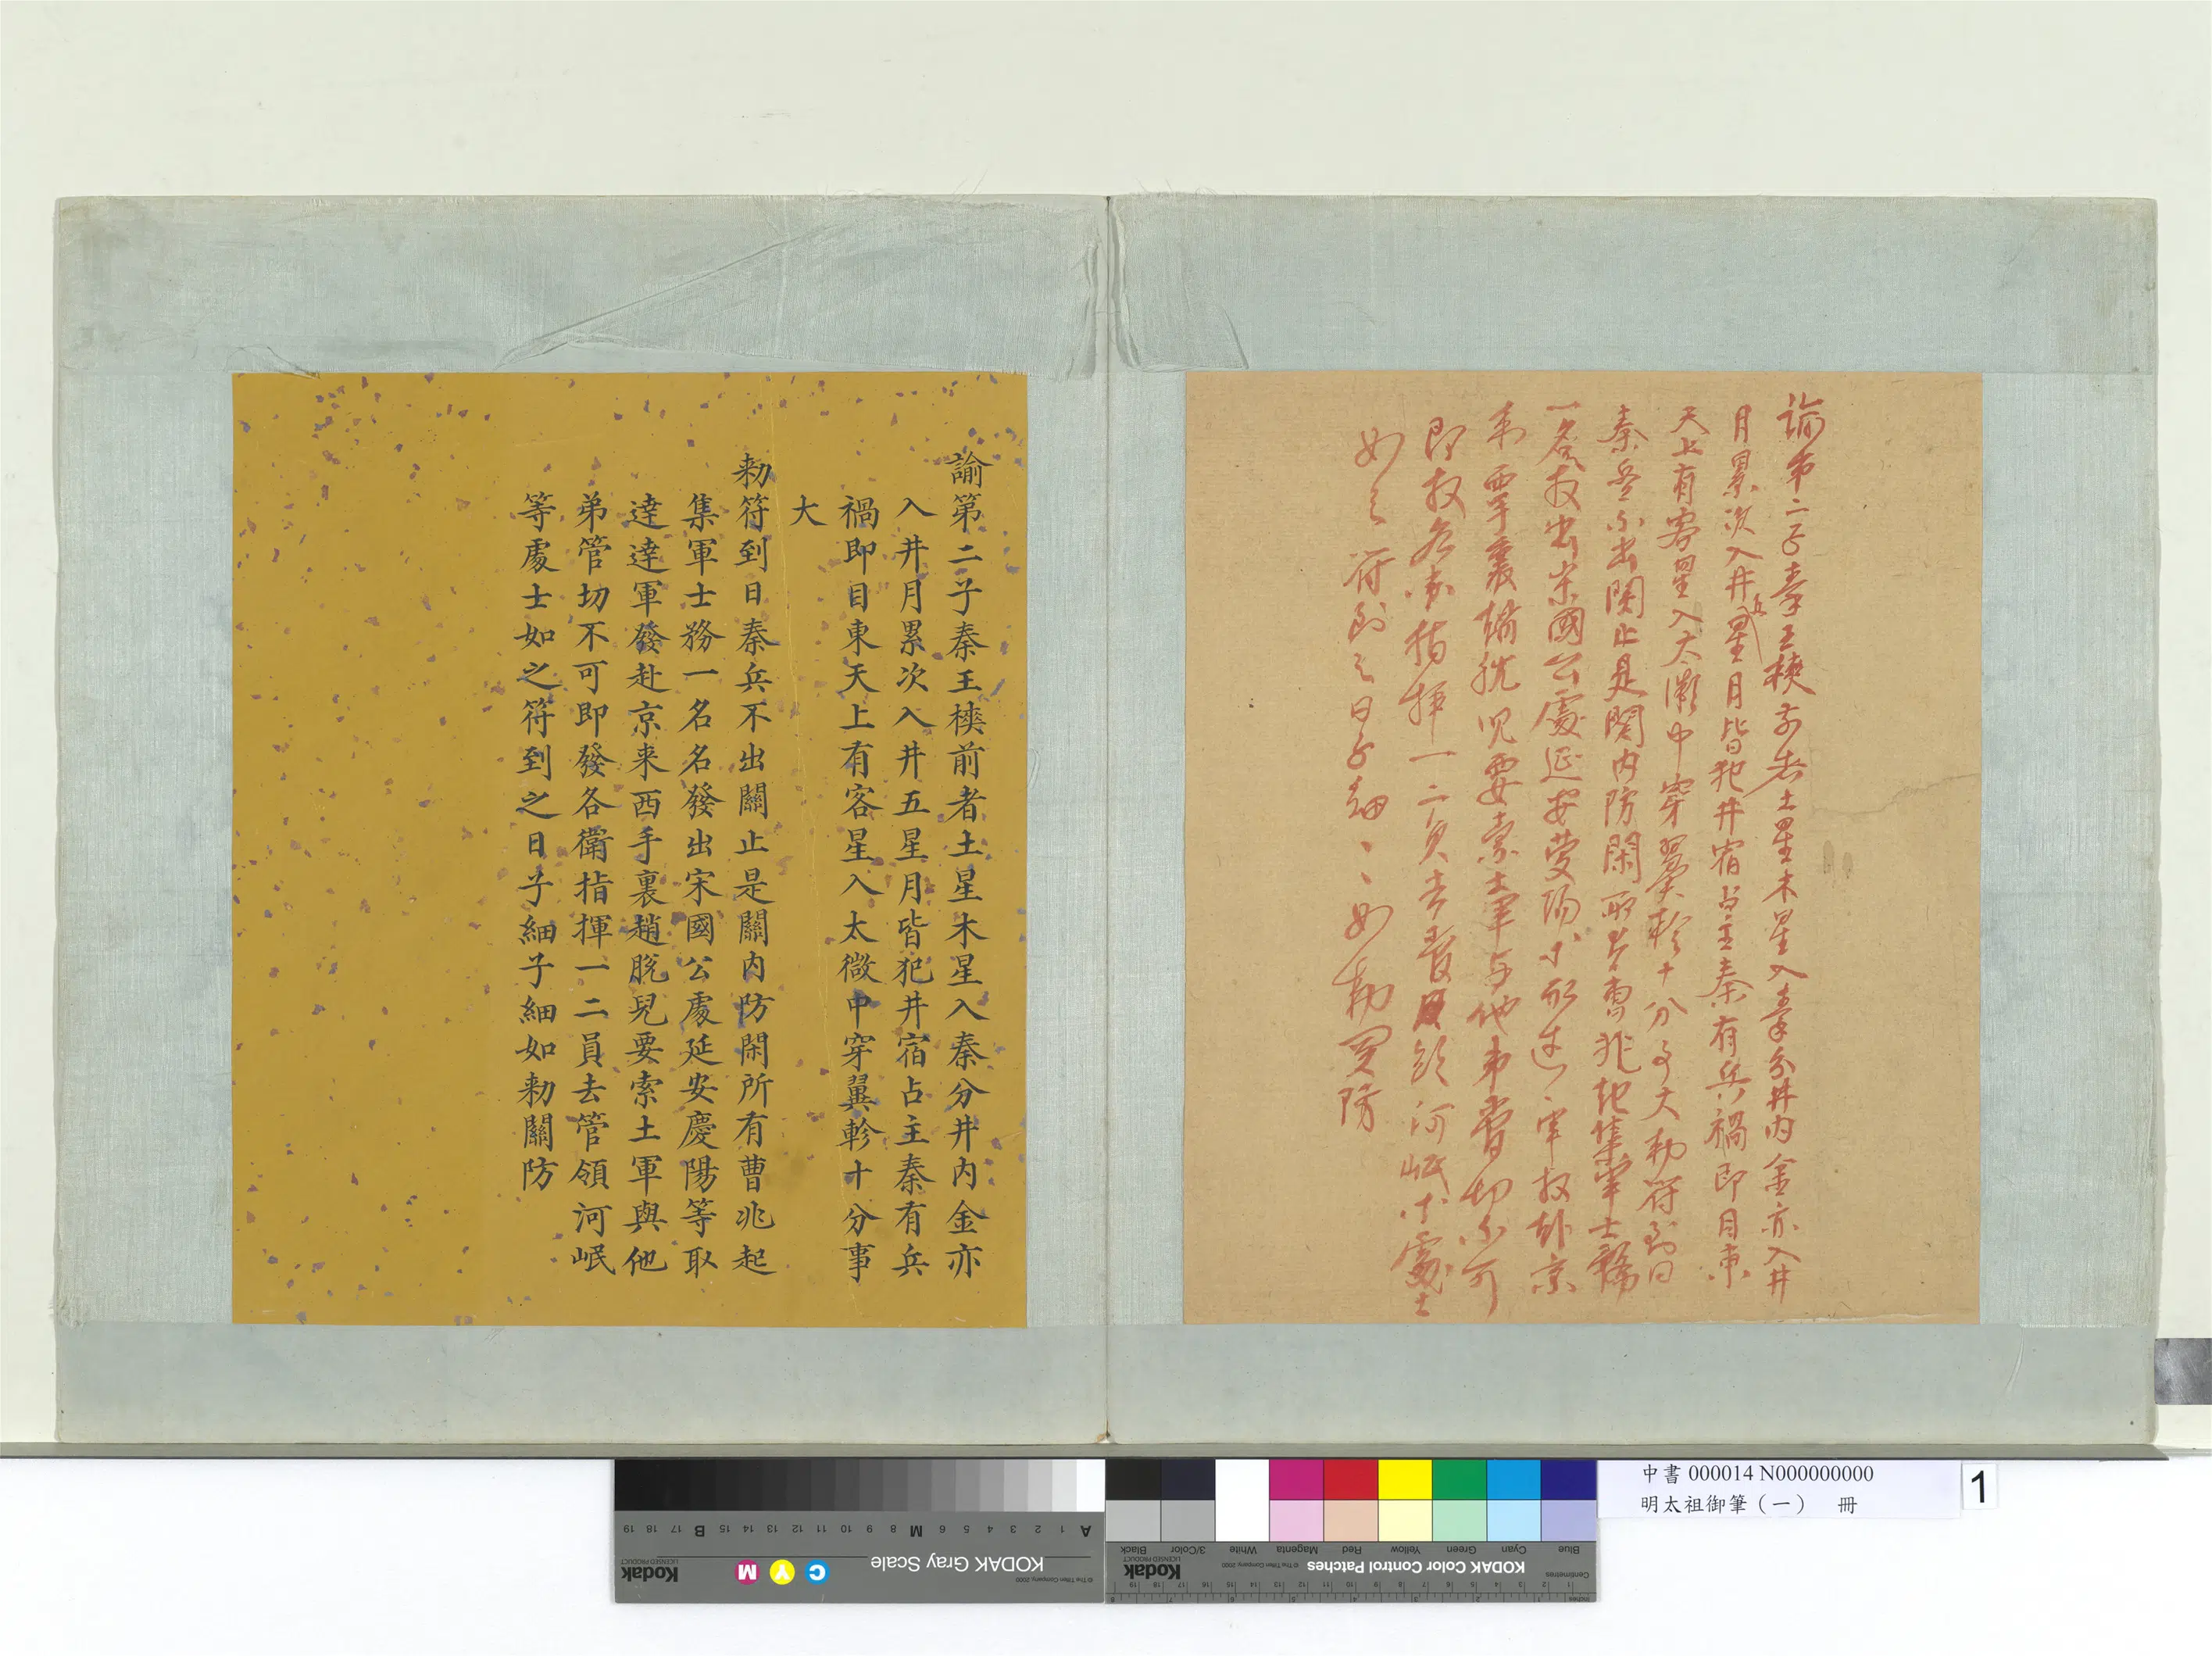 諭第二子秦王樉前者土星木星入秦分井内金亦入井
月累次入井五星月皆犯井宿占主秦有兵禍即目東
天上有客星入太微中穿翼軫十分事大勑符到日
秦兵不出関止是関内防閑所有曹兆起集軍士務
一名名發出宋國公處延安慶陽等取達達軍發赴京
来西手裏趙脱兒要索土軍与他弟管切不可
即發各衛指揮一二員去管領河岷等處士
如之符到之日子細、、如勑関防
諭第二子秦王樉前者土星木星入秦分井内金亦
入井月累次入井五星月皆犯井宿占主秦有兵
禍即目東天上有客星入太微中穿翼軫十分事
大
勑符到日秦兵不出關止是關内防閑所有曹兆起
集軍士務一名名發出宋國公處延安慶陽等取
達達軍發赴京来西手裏趙脱兒要索土軍與他
弟管切不可即發各衛指揮一二員去管領河岷
等處士如之符到之日子細子細如勑關防
中書 000014 N000000000
明太祖御筆（一） 冊
1
KODAK Gray Scale
Kodak
LICENSED PRODUCT
© The Tiffen Company, 2000
C Y M
A 1 2 3 4 5 6 M 8 9 10 11 12 13 14 15 B 17 18 19
KODAK Color Control Patches
© The Tiffen Company, 2000
Kodak
LICENSED PRODUCT
Centimetres
Blue Cyan Green Yellow Red Magenta White 3/Color Black